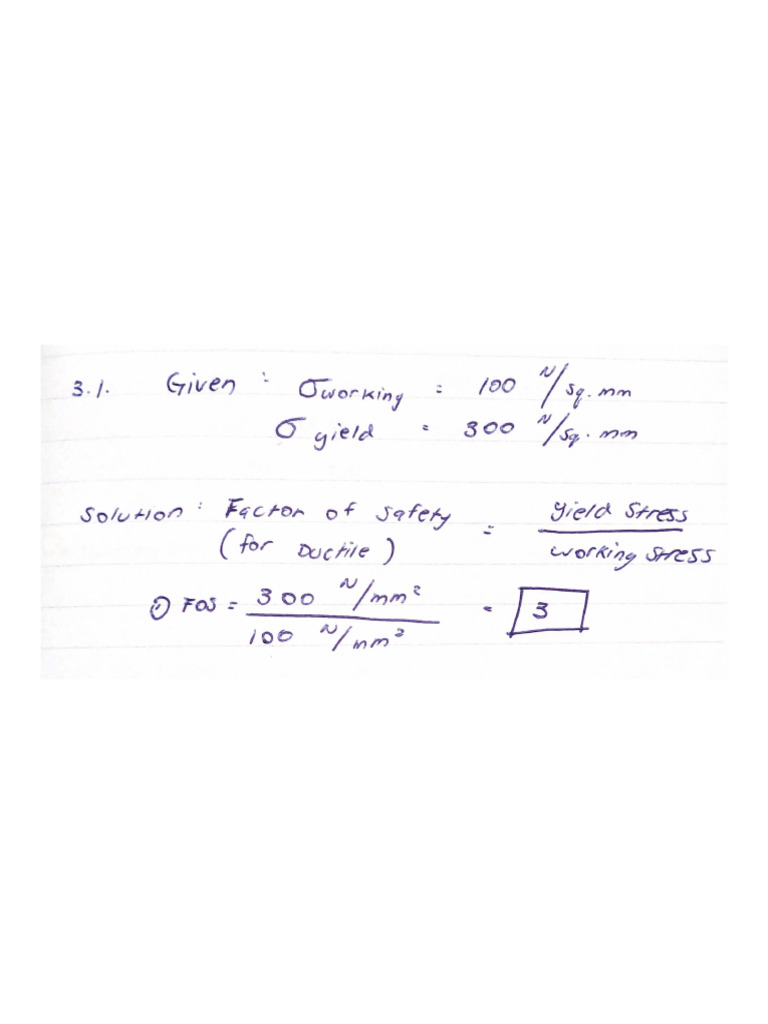 3.1. Given : σworking = 100 N/sq.mm
σ yield = 300 N/sq.mm
Solution : Factor of safety = yield stress / working stress
(for Ductile)
① FOS = 300 N/mm² / 100 N/mm² = 3